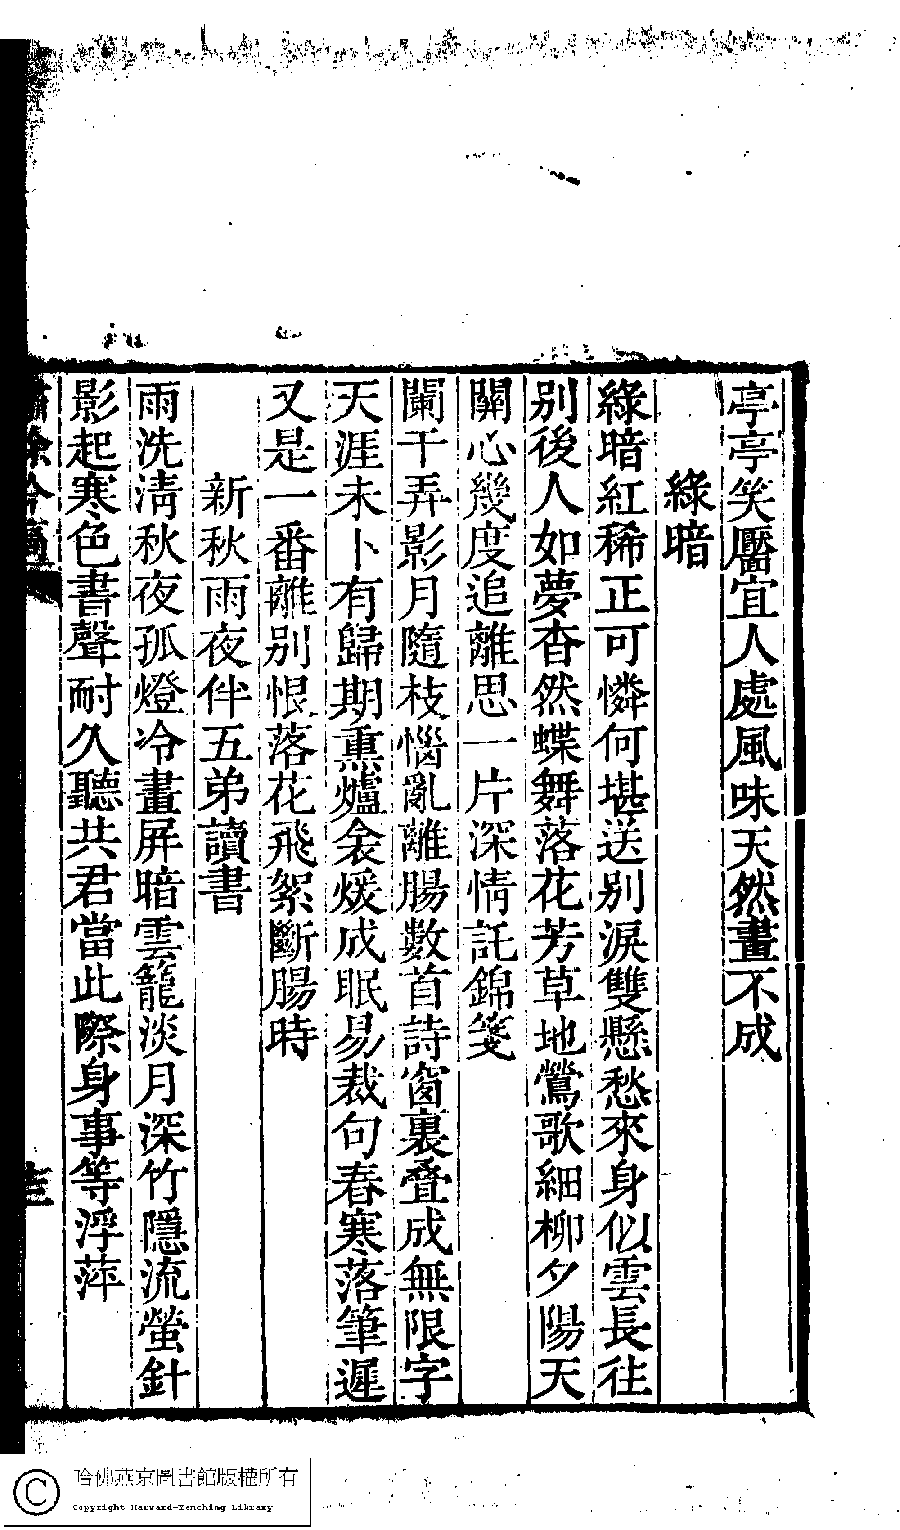 亭亭笑靨宜人處風味天然畫不成
綠暗
綠暗紅稀正可憐何堪送別淚雙懸愁來身似雲長往
別後人如夢杳然蝶舞落花芳草地鶯歌細柳夕陽天
關心幾度追離思一片深情託錦箋
闌干弄影月隨枝惱亂離腸數首詩窗裏叠成無限字
天涯未卜有歸期熏爐衾煖成眠易裁句春寒落筆遲
又是一番離別恨落花飛絮斷腸時
新秋雨夜伴五弟讀書
雨洗淸秋夜孤燈冷畫屏暗雲籠淡月深竹隱流螢針
影起寒色書聲耐久聽共君當此際身事等浮萍
哈佛燕京圖書館版權所有
Copyright Harvard-Yenching Library